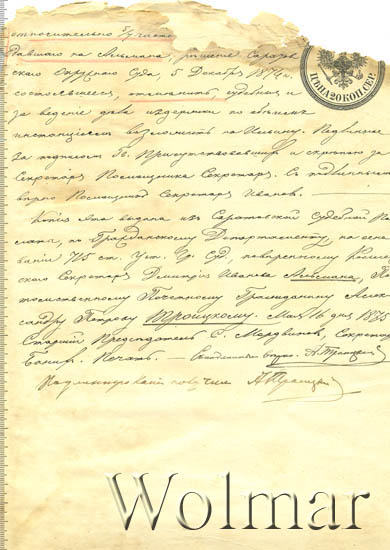 относительно участка
давшаго на Ильмана, решение Саратов
скаго Окружнаго Суда, 5 Декабря 1874 г.
состоявшееся, отменить, судебныя и
за ведение дела издержки по обеимъ
инстанціямъ возложить на Ильину. Подлинное
за подписомъ Гг. Присутствовавшихъ и скрепою за
Секретаря Помощника Секретаря. Съ подлиннымъ
верно Помощникъ Секретаря Ивановъ.
Копія эта выдана изъ Саратовской Судебной Па
латы, по Гражданскому Департаменту, на осно
ваніи 715 ст. Уст. Гр. Суд, поверенному Коллеж
скаго Секретаря Дмитрія Иванова Ильмана, По
томственному Почетному Гражданину Алек
сандру Петрову Троицкому. Мая 16 дня 1875
Старшій Председатель С. Мордвиновъ, Секретарь
Печать. А. Троицкій
Подлинную копію получилъ А. Троицкій
ЦѢНА 20 КОП. СЕР.
Wolmar